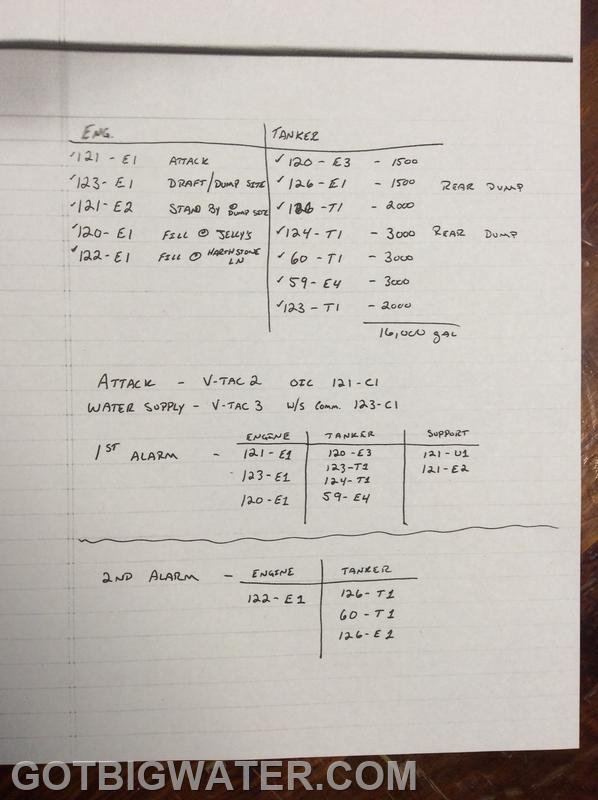 ENG. TANKER
✓121 - E1 ATTACK ✓120 - E3 - 1500
✓123 - E1 DRAFT/DUMP SITE ✓126 - E1 - 1500 REAR DUMP
✓121 - E2 STAND BY @ DUMP SITE ✓126 - T1 - 2000
✓120 - E1 FILL @ JELLY'S ✓124 - T1 - 3000 REAR DUMP
✓122 - E1 FILL @ HARTHSTONE LN ✓60 - T1 - 3000
✓59 - E4 - 3000
✓123 - T1 - 2000
16,000 gal
ATTACK - V-TAC 2 OIC 121-C1
WATER SUPPLY - V-TAC 3 W/S COMM. 123-C1
ENGINE TANKER SUPPORT
1ST ALARM - 121 - E1 120 - E3 121 - U1
123 - E1 123 - T1 121 - E2
120 - E1 124 - T1
59 - E4
2ND ALARM - ENGINE TANKER
122 - E1 126 - T1
60 - T1
126 - E1
GOTBIGWATER.COM